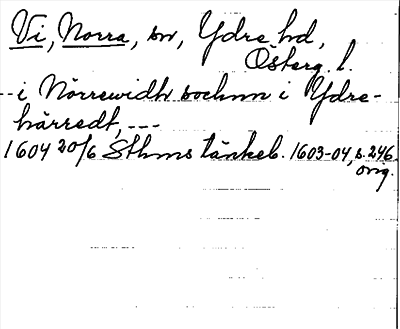 Vi, Norra, sn, Ydre hd,
Österg. l.
-- i Nörrewidh sochnn i Ydre-
härredt, ---
1604 20/6 Sthms tänkeb. 1603-04, s. 246.
orig.